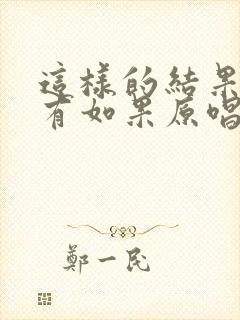 這樣的結果
有如果原唱
鄭一民